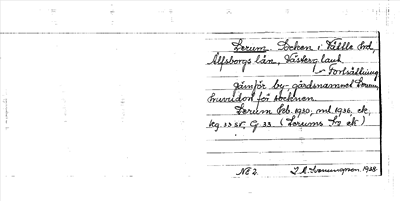 Lerum. Socken i Vättle hd,
Älfsborgs län, Västergötland
Fortsättning
Jämför by- gårdsnamnet Lerum,
huvudort för socknen.
Lerum feb. 1930, mt. 1936, ek.
kg. 33 SV, G 33 (Lerums fs ek)
No 2.
1938